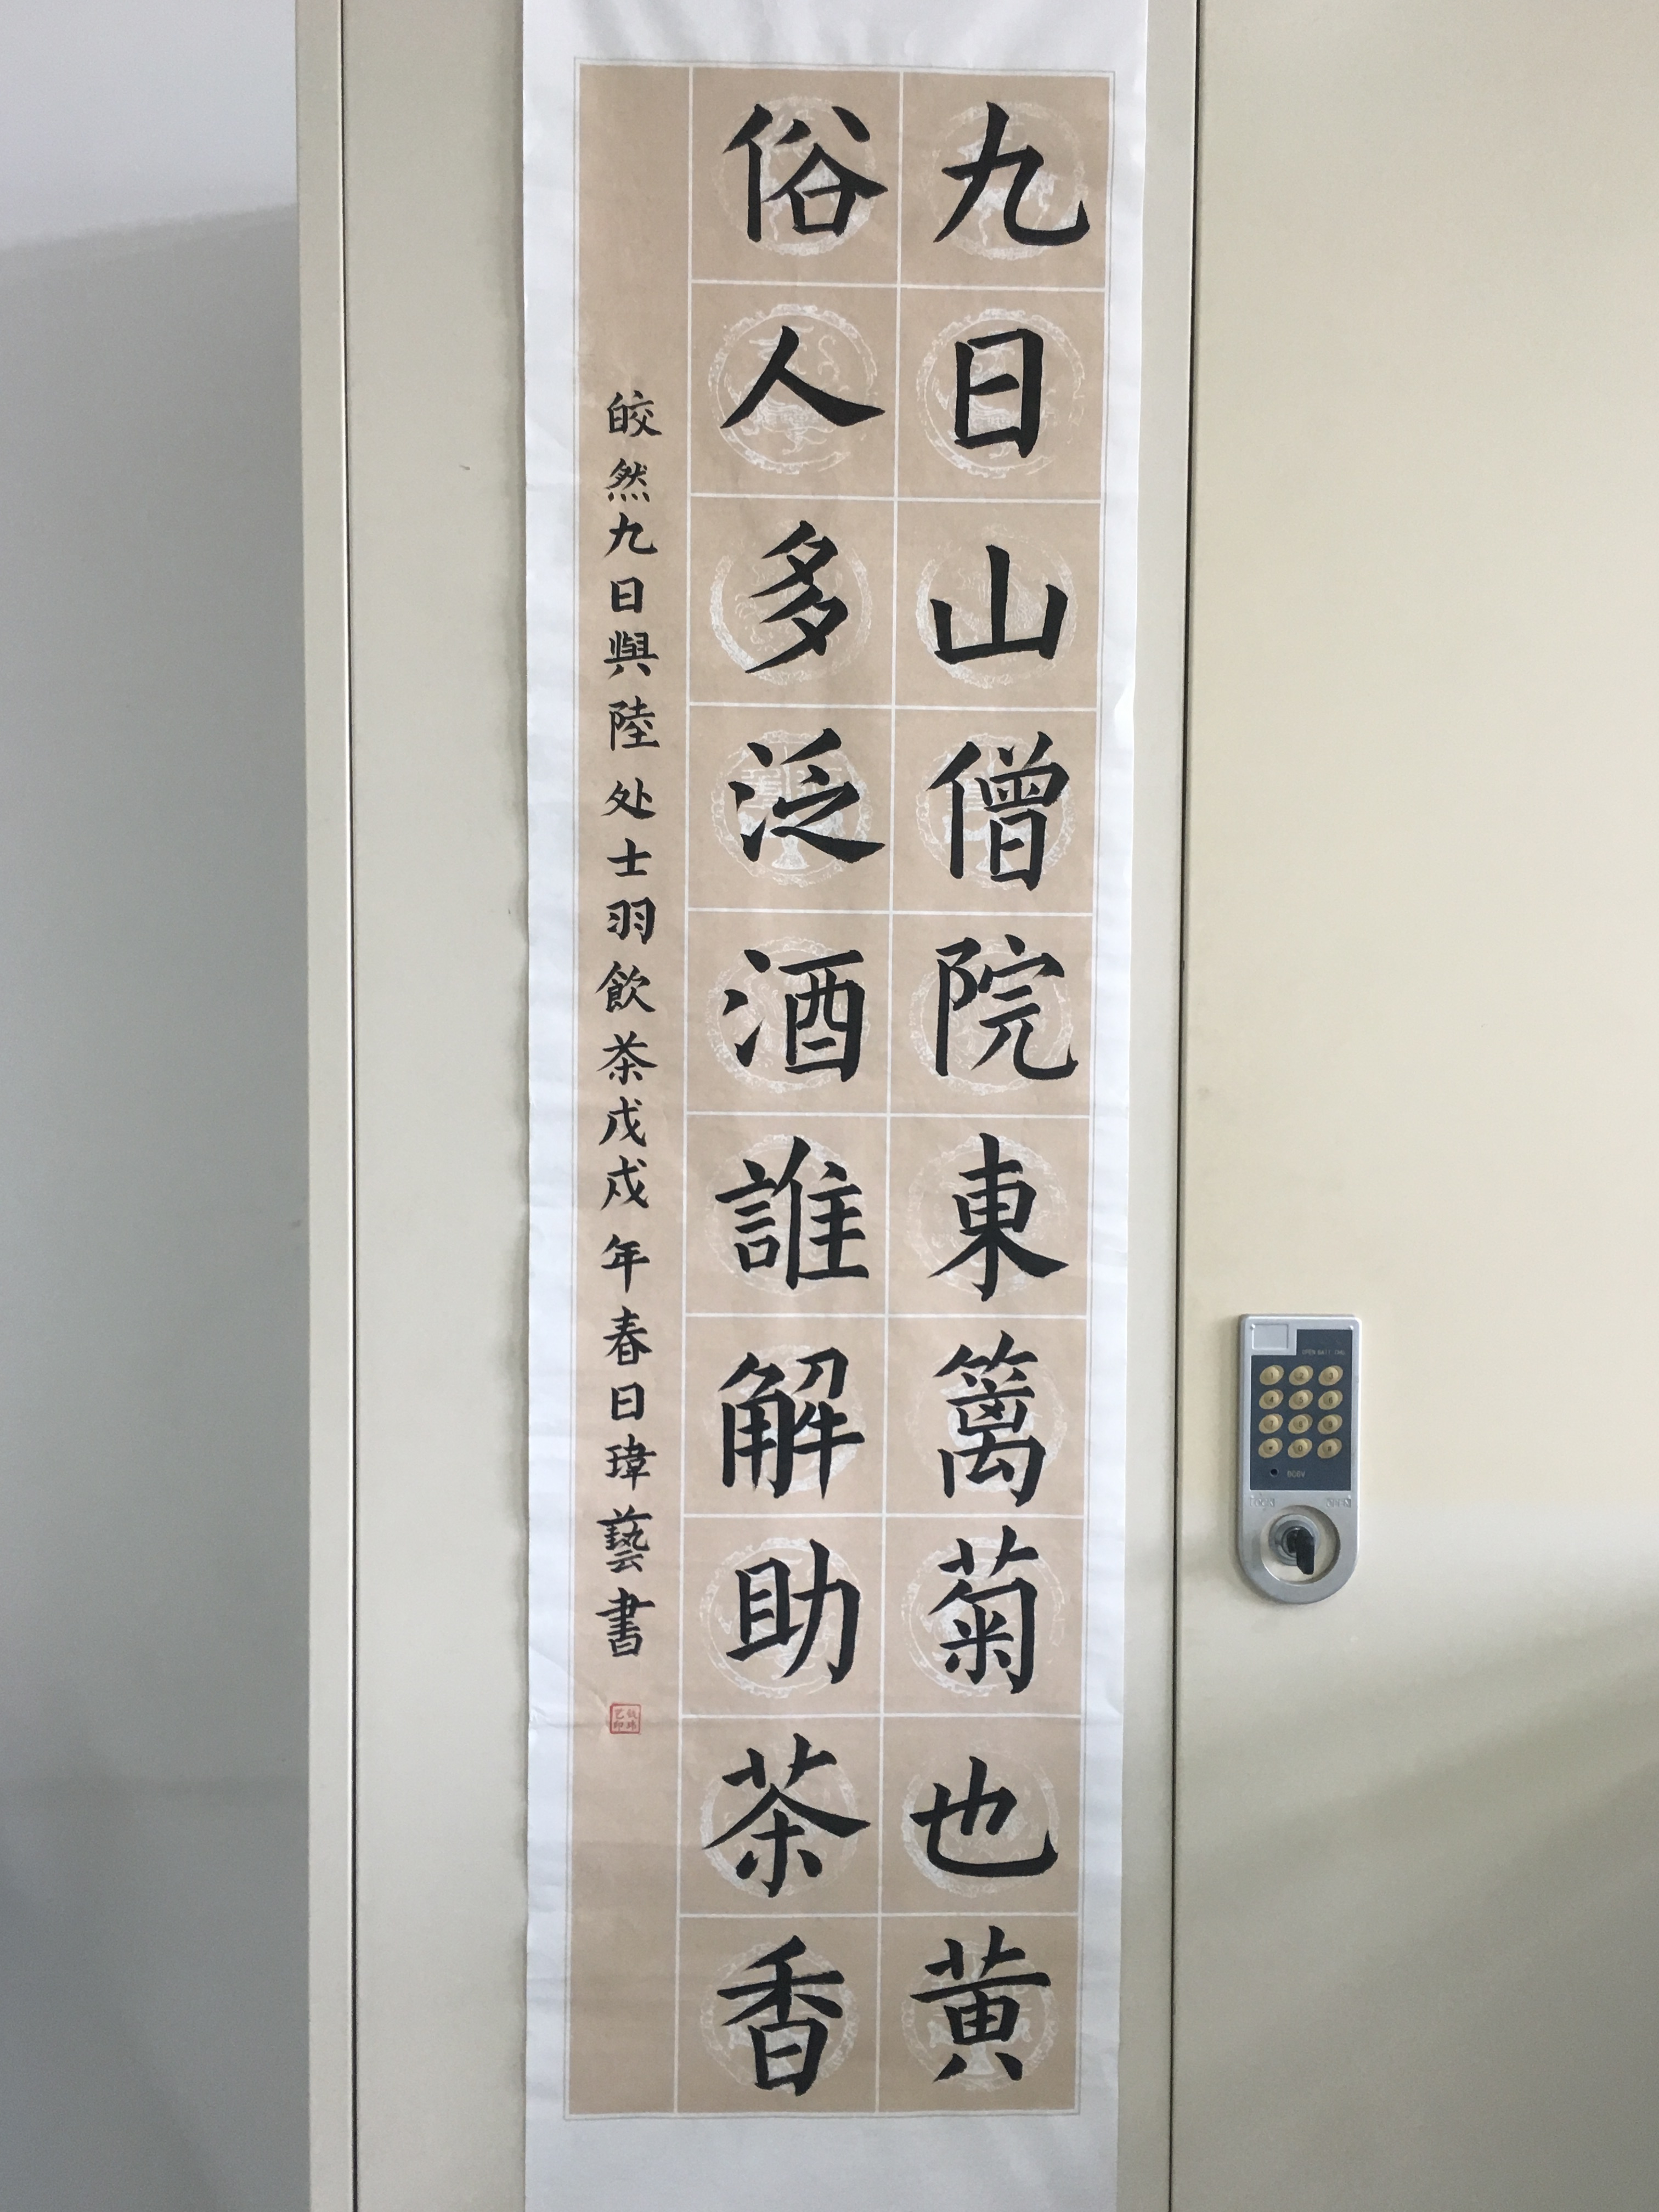 九日山僧院東籬菊也黄
俗人多泛酒誰解助茶香
皎然九日與陸处士羽飲茶戊戌年春日瑋藝書